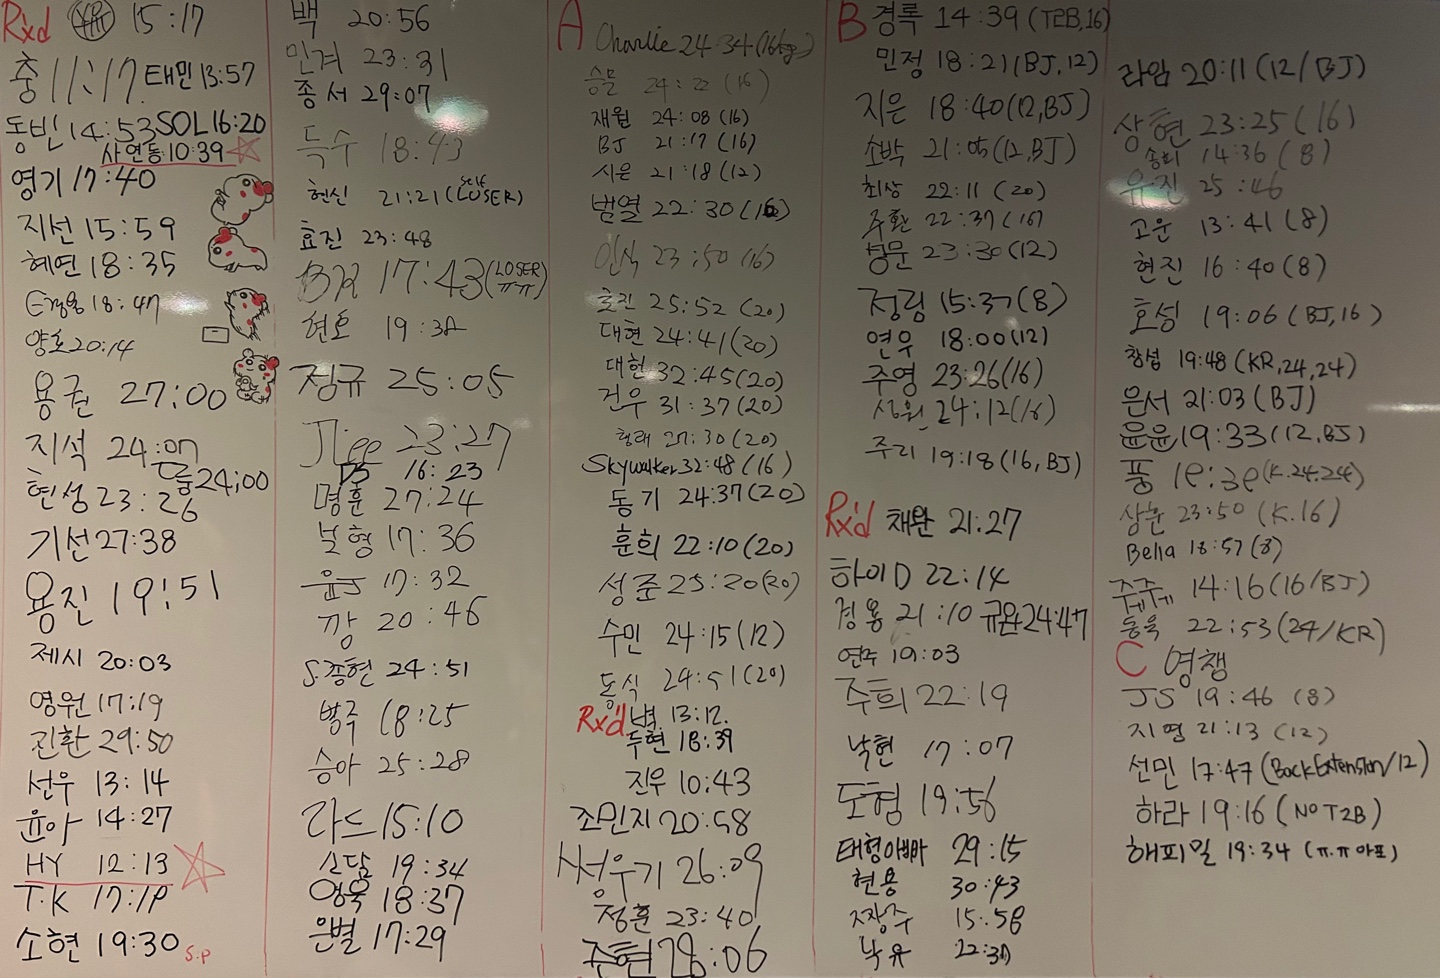 Rx'd 15:17
충 11:17 태민 13:57
동빈 14:53 SOL 16:20
사연동 10:39
영기 17:40
지선 15:59
혜연 18:35
18:47
양호 20:14
용권 27:00
지석 24:07
24:00
현성 23:26
기선 27:38
용진 19:51
제시 20:03
영원 17:19
진환 29:50
선우 13:14
윤아 14:27
HY 12:13
T.K 17:19
소현 19:30 S.P
백 20:56
민겨 23:31
종서 29:07
득수 18:43
현신 21:21 (self LOSER)
효진 23:48
BK 17:43 (LOSER ㅠㅠ)
현호 19:38
정규 25:05
JLee 23:27
DS 16:23
명훈 27:24
보형 17:36
윤J 17:32
깡 20:46
S.종현 24:51
범주 18:25
승아 25:28
라드 15:10
신담 19:34
영욱 18:37
은별 17:29
A Charlie 24:34 (16kg)
승문 24:22 (16)
재월 24:08 (16)
BJ 21:17 (16)
시은 21:18 (12)
범열 22:30 (16)
인식 23:50 (16)
효진 25:52 (20)
대현 24:41 (20)
대헌 32:45 (20)
건우 31:37 (20)
형래 27:30 (20)
Skywalker 32:48 (16)
동기 24:37 (20)
훈희 22:10 (20)
성준 25:20 (20)
수민 24:15 (12)
동식 24:51 (20)
Rx'd 벽 13:12.
두현 18:39
진우 10:43
조민지 20:58
서우기 26:09
정훈 23:40
준현 28:06
B 경록 14:39 (T2B,16)
민정 18:21 (BJ,12)
지은 18:40 (12,BJ)
소박 21:05 (12,BJ)
최상 22:11 (20)
주환 22:37 (16)
병문 23:30 (12)
정림 15:37 (8)
연우 18:00 (12)
주영 23:26 (16)
상원 24:12 (16)
주리 19:18 (16,BJ)
Rx'd 채완 21:27
하이D 22:14
경용 21:10 규완 24:47
연주 19:03
주희 22:19
낙현 17:07
도형 19:56
태형아빠 29:15
현용 30:43
15:58
낙유 22:30
라임 20:11 (12/BJ)
상현 23:25 (16)
송희 14:36 (8)
유진 25:46
고운 13:41 (8)
현진 16:40 (8)
호성 19:06 (BJ,16)
창섭 19:48 (KR,24,24)
은서 21:03 (BJ)
윤윤 19:33 (12,BJ)
풍 19:39 (K.24.24)
상훈 23:50 (K.16)
Bella 18:57 (8)
쥬쥬 14:16 (16/BJ)
동욱 22:53 (24/KR)
C 영챙
JS 19:46 (8)
지영 21:13 (12)
선민 17:47 (BackExtension/12)
하라 19:16 (NO T2B)
해피밀 19:34 (ㅠ.ㅠ 아포)